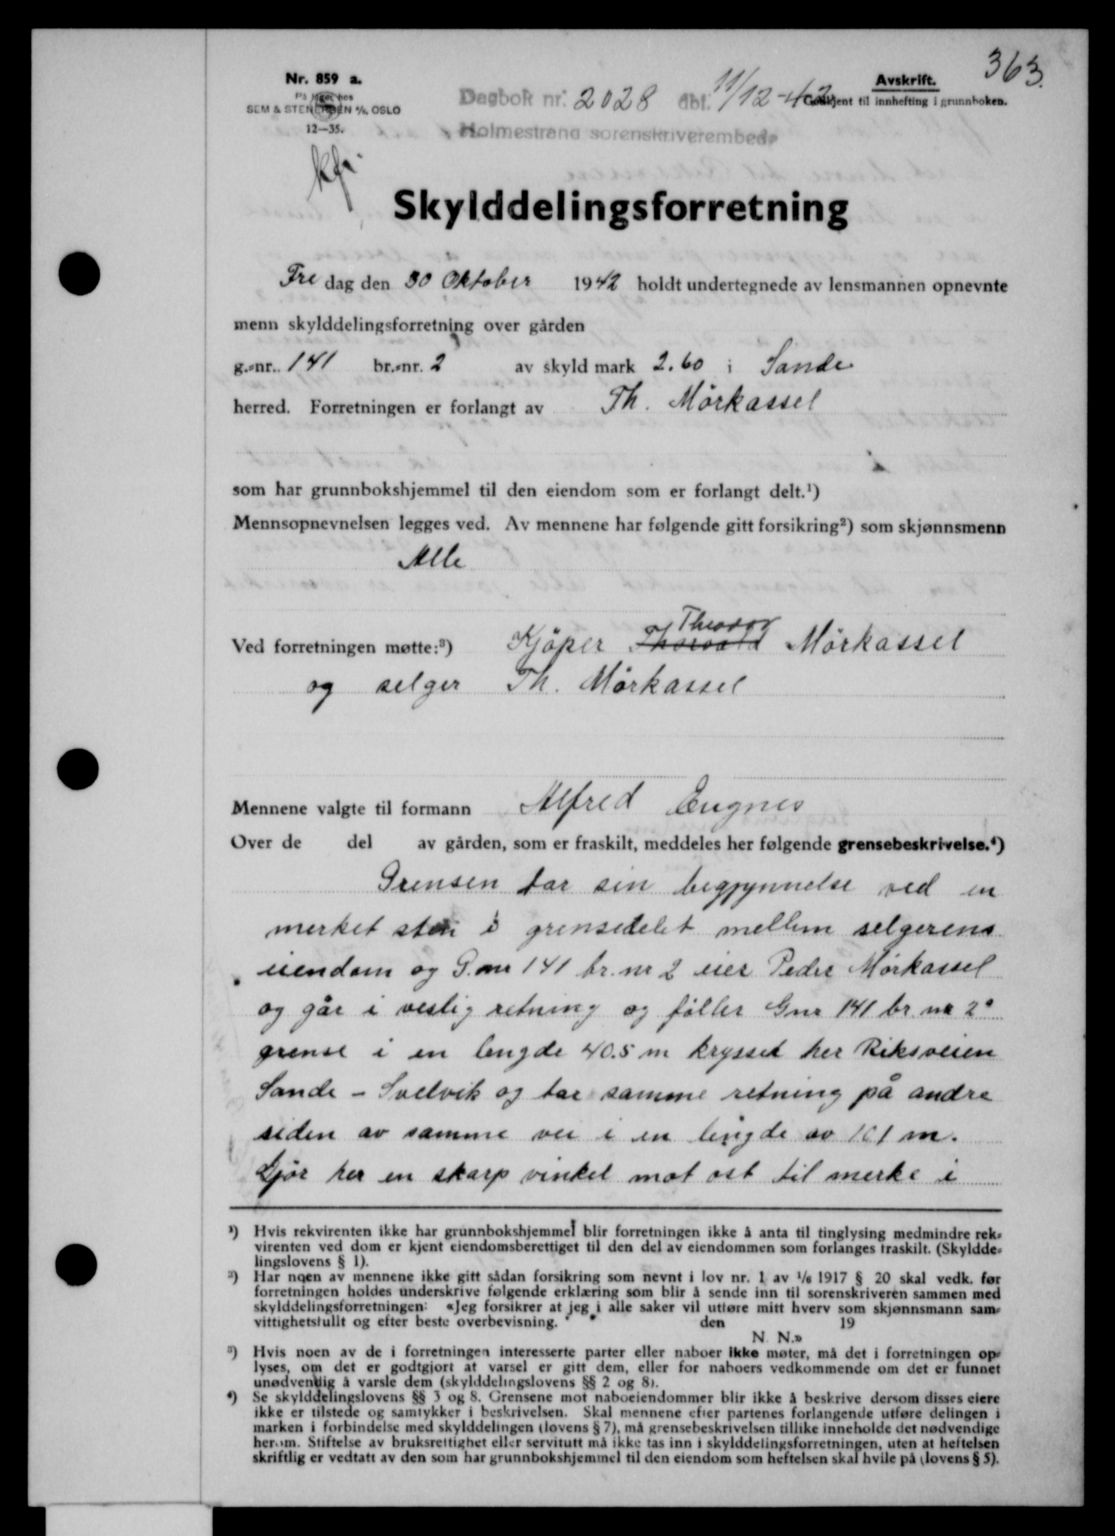 363.
Nr. 859 a.
SEM & STENERSEN A/S, OSLO
12—35.
Dagbok nr. 2028 dbf. 11/12-42
Holmestrand sorenskriverembede
Avskrift.
Godkjent til innhefting i grunnboken.
Skylddelingsforretning
Fre dag den 30 Oktober 1942 holdt undertegnede av lensmannen opnevnte
menn skylddelingsforretning over gården
g.-nr. 141 br.-nr. 2 av skyld mark 2.60 i Sande
herred. Forretningen er forlangt av Th. Mörkassel
som har grunnbokshjemmel til den eiendom som er forlangt delt.¹)
Mennsopnevnelsen legges ved. Av mennene har følgende gitt forsikring²) som skjønnsmenn
Alle
Theodor
Ved forretningen møtte:³) Kjöper Thorvald Mörkassel
og selger Th. Mörkassel
Mennene valgte til formann Alfred Engnes
Over de del av gården, som er fraskilt, meddeles her følgende grensebeskrivelse.⁴)
Grensen tar sin begynnelse ved en
merket sten i grensedelet mellem selgerens
eiendom og G.nr 141 br. nr 2 eier Peder Mörkassel
og går i vestlig retning og föller Gnr 141 br. nr 2ˢ
grense i en lengde 40.5 m krysset her Riksveien
Sande - Svelvik og tar samme retning på andre
siden av samme vei i en lengde av 101 m.
Gjör her en skarp vinkel mot ost til merke i
¹) Hvis rekvirenten ikke har grunnbokshjemmel blir forretningen ikke å anta til tinglysing medmindre rek-
virenten ved dom er kjent eiendomsberettiget til den del av eiendommen som forlanges fraskilt. (Skyldde-
lingslovens § 1).
²) Har noen av mennene ikke gitt sådan forsikring som nevnt i lov nr. 1 av 1/6 1917 § 20 skal vedk. før
forretningen holdes underskrive følgende erklæring som blir å sende inn til sorenskriveren sammen med
skylddelingsforretningen: «Jeg forsikrer at jeg i alle saker vil utføre mitt hverv som skjønnsmann sam-
vittighetsfullt og efter beste overbevisning. den 19
N. N.»
³) Hvis noen av de i forretningen interesserte parter eller naboer ikke møter, må det i forretningen op-
lyses, om det er godtgjort at varsel er gitt dem, eller for naboers vedkommende om det er funnet
unødvendig å varsle dem (skylddelingslovens §§ 2 og 8).
⁴) Se skylddelingslovens §§ 3 og 8. Grensene mot naboeiendommer blir ikke å beskrive dersom disses eiere
ikke er tilstede og samtykker i beskrivelsen. Skal mennene efter partenes forlangende utføre delingen i
marken i forbindelse med skylddelingen (lovens § 7), må grensebeskrivelsen tillike inneholde det nødvendige
herom. Stiftelse av bruksrettighet eller servitutt må ikke tas inn i skylddelingsforretningen, uten at heftelsen
skriftlig er vedtatt av den som har grunnbokshjemmel til den eiendom som heftelsen skal hvile på (lovens § 5).